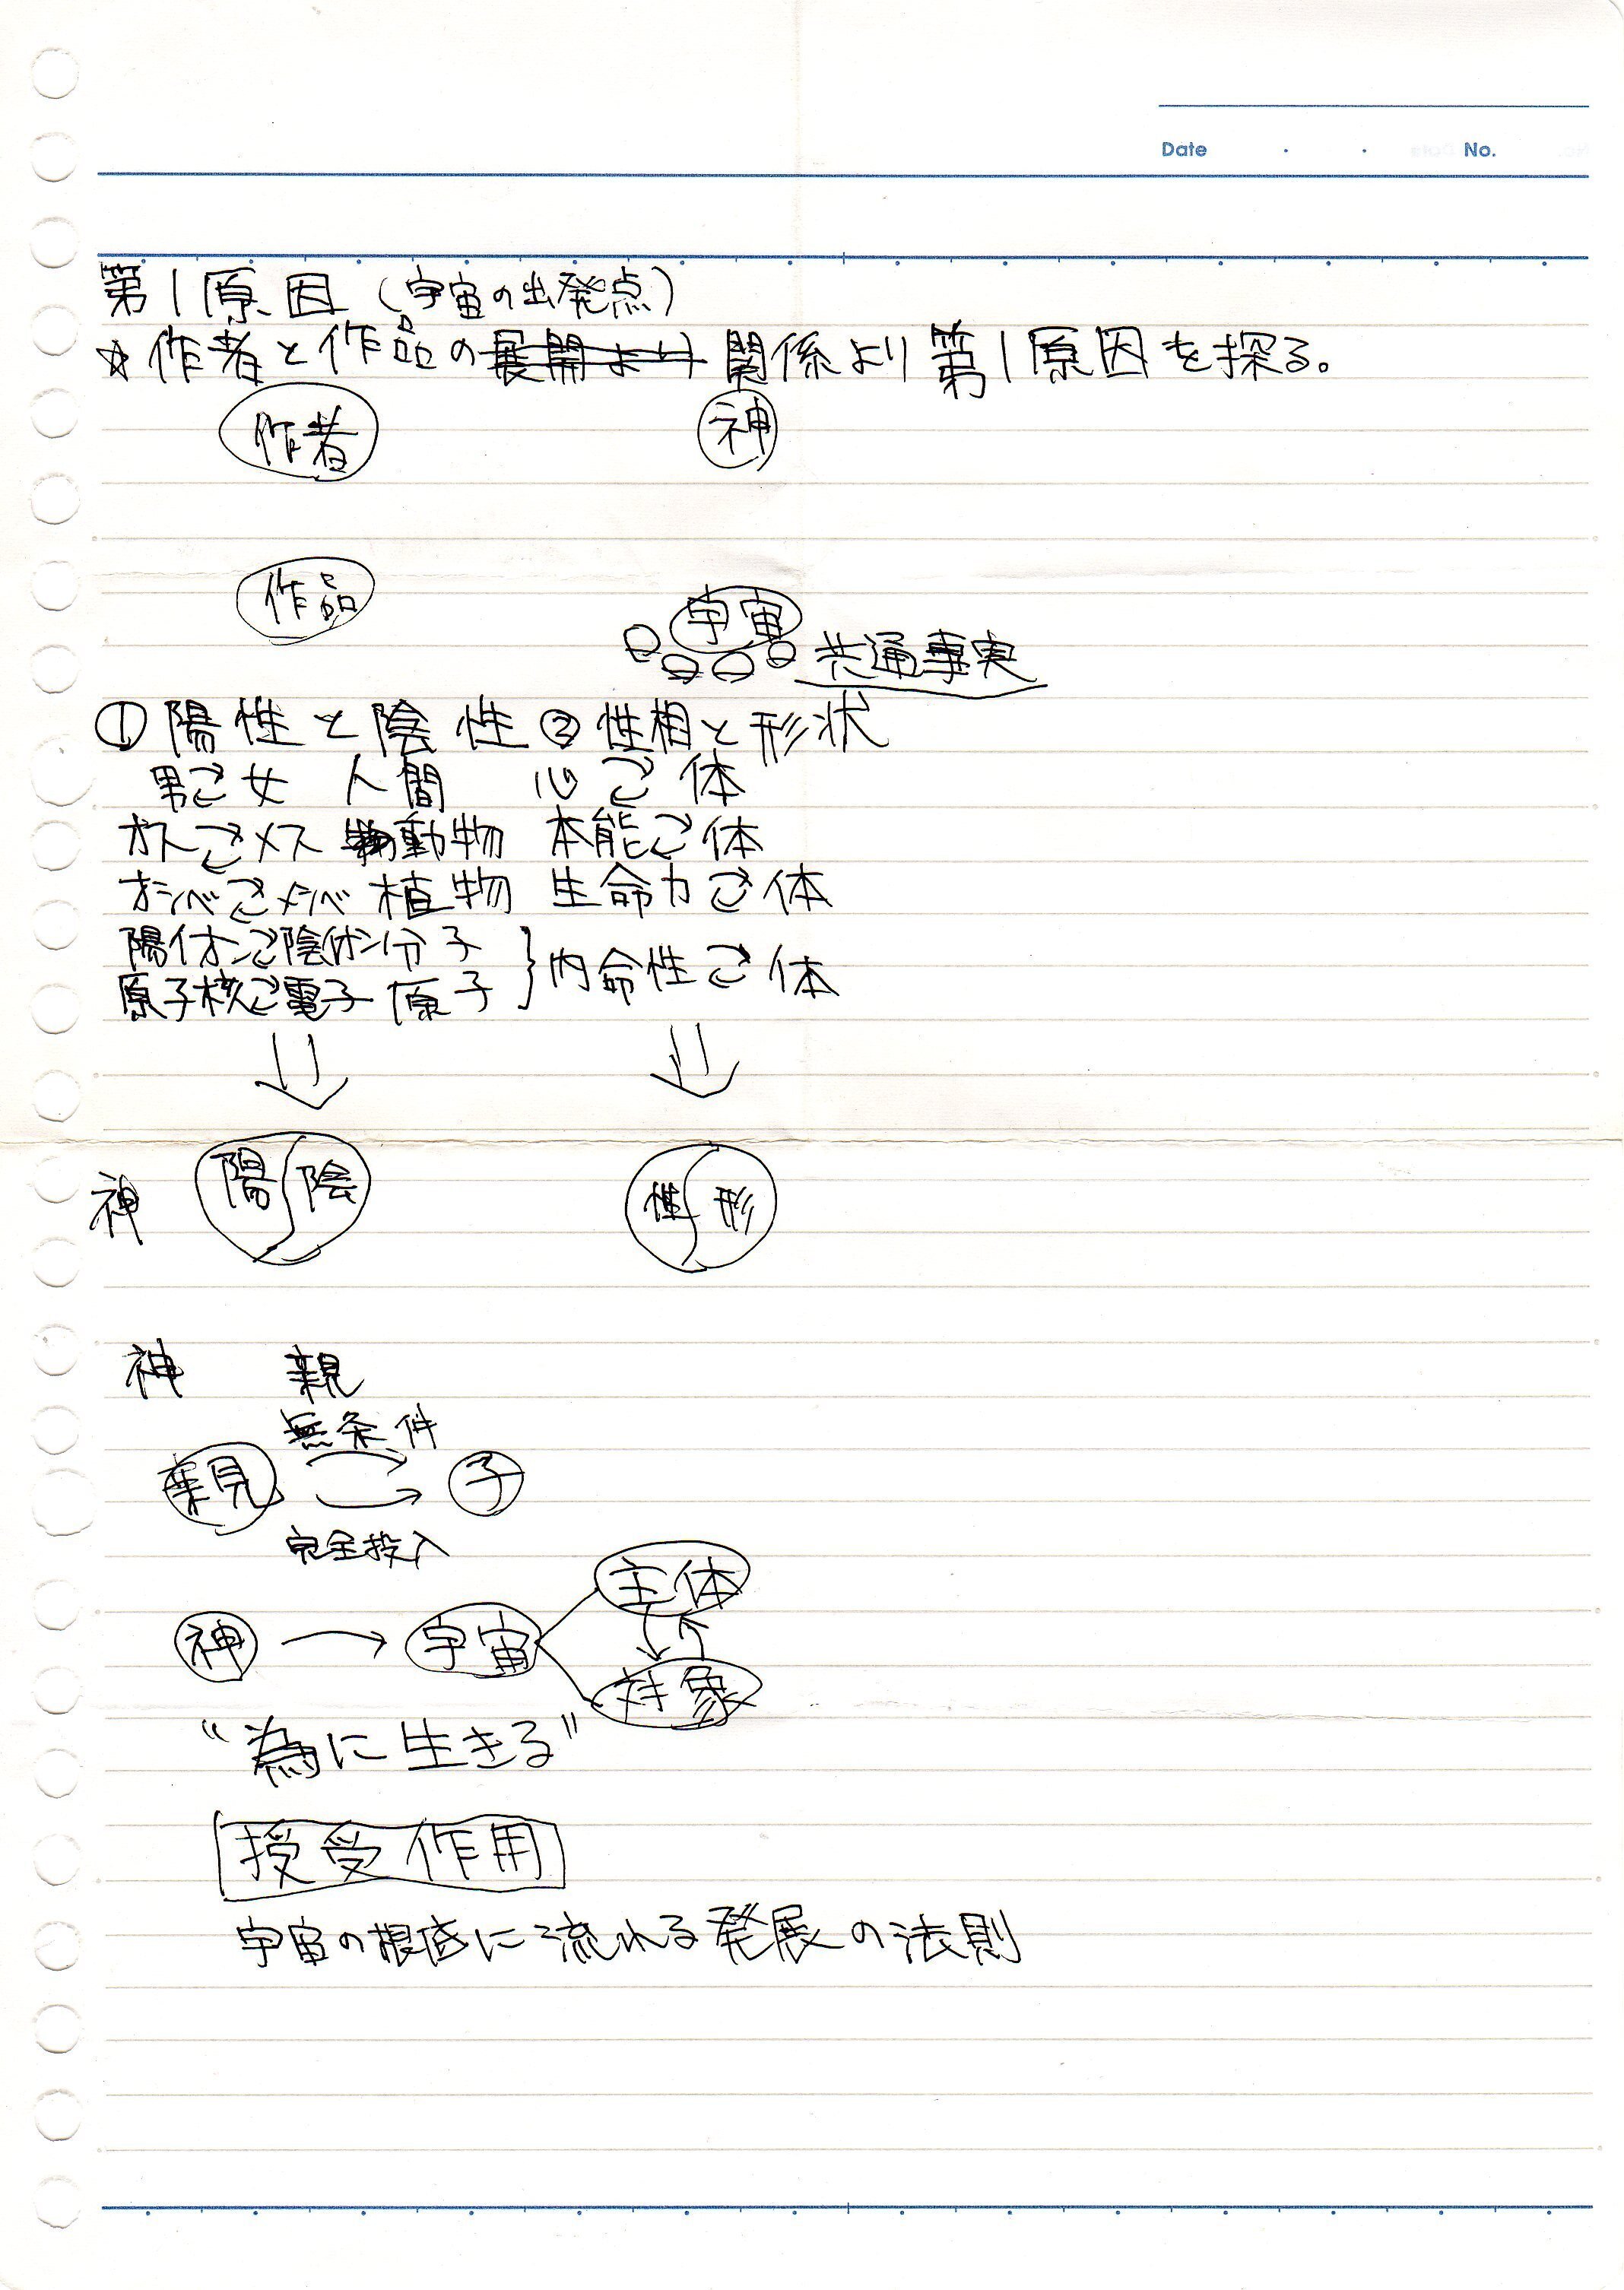 Date ・ ・ No.
第1原因(宇宙の出発点)
☆作者と作品の展開より関係より第1原因を探る。
作者 神
作品
宇宙
共通事実
①陽性と陰性 ②性相と形状
男⇄女 人間 心⇄体
オス⇄メス 動物 本能⇄体
オシベ⇄メシベ 植物 生命力⇄体
陽イオン⇄陰イオン 分子
原子核⇄電子 原子 } 内命性⇄体
⇓ ⇓
神 陽 陰 性 形
神 親
無条件
親 → 子
完全投入
主体
神 → 宇宙
対象
“為に生きる”
授受作用
宇宙の根底に流れる発展の法則